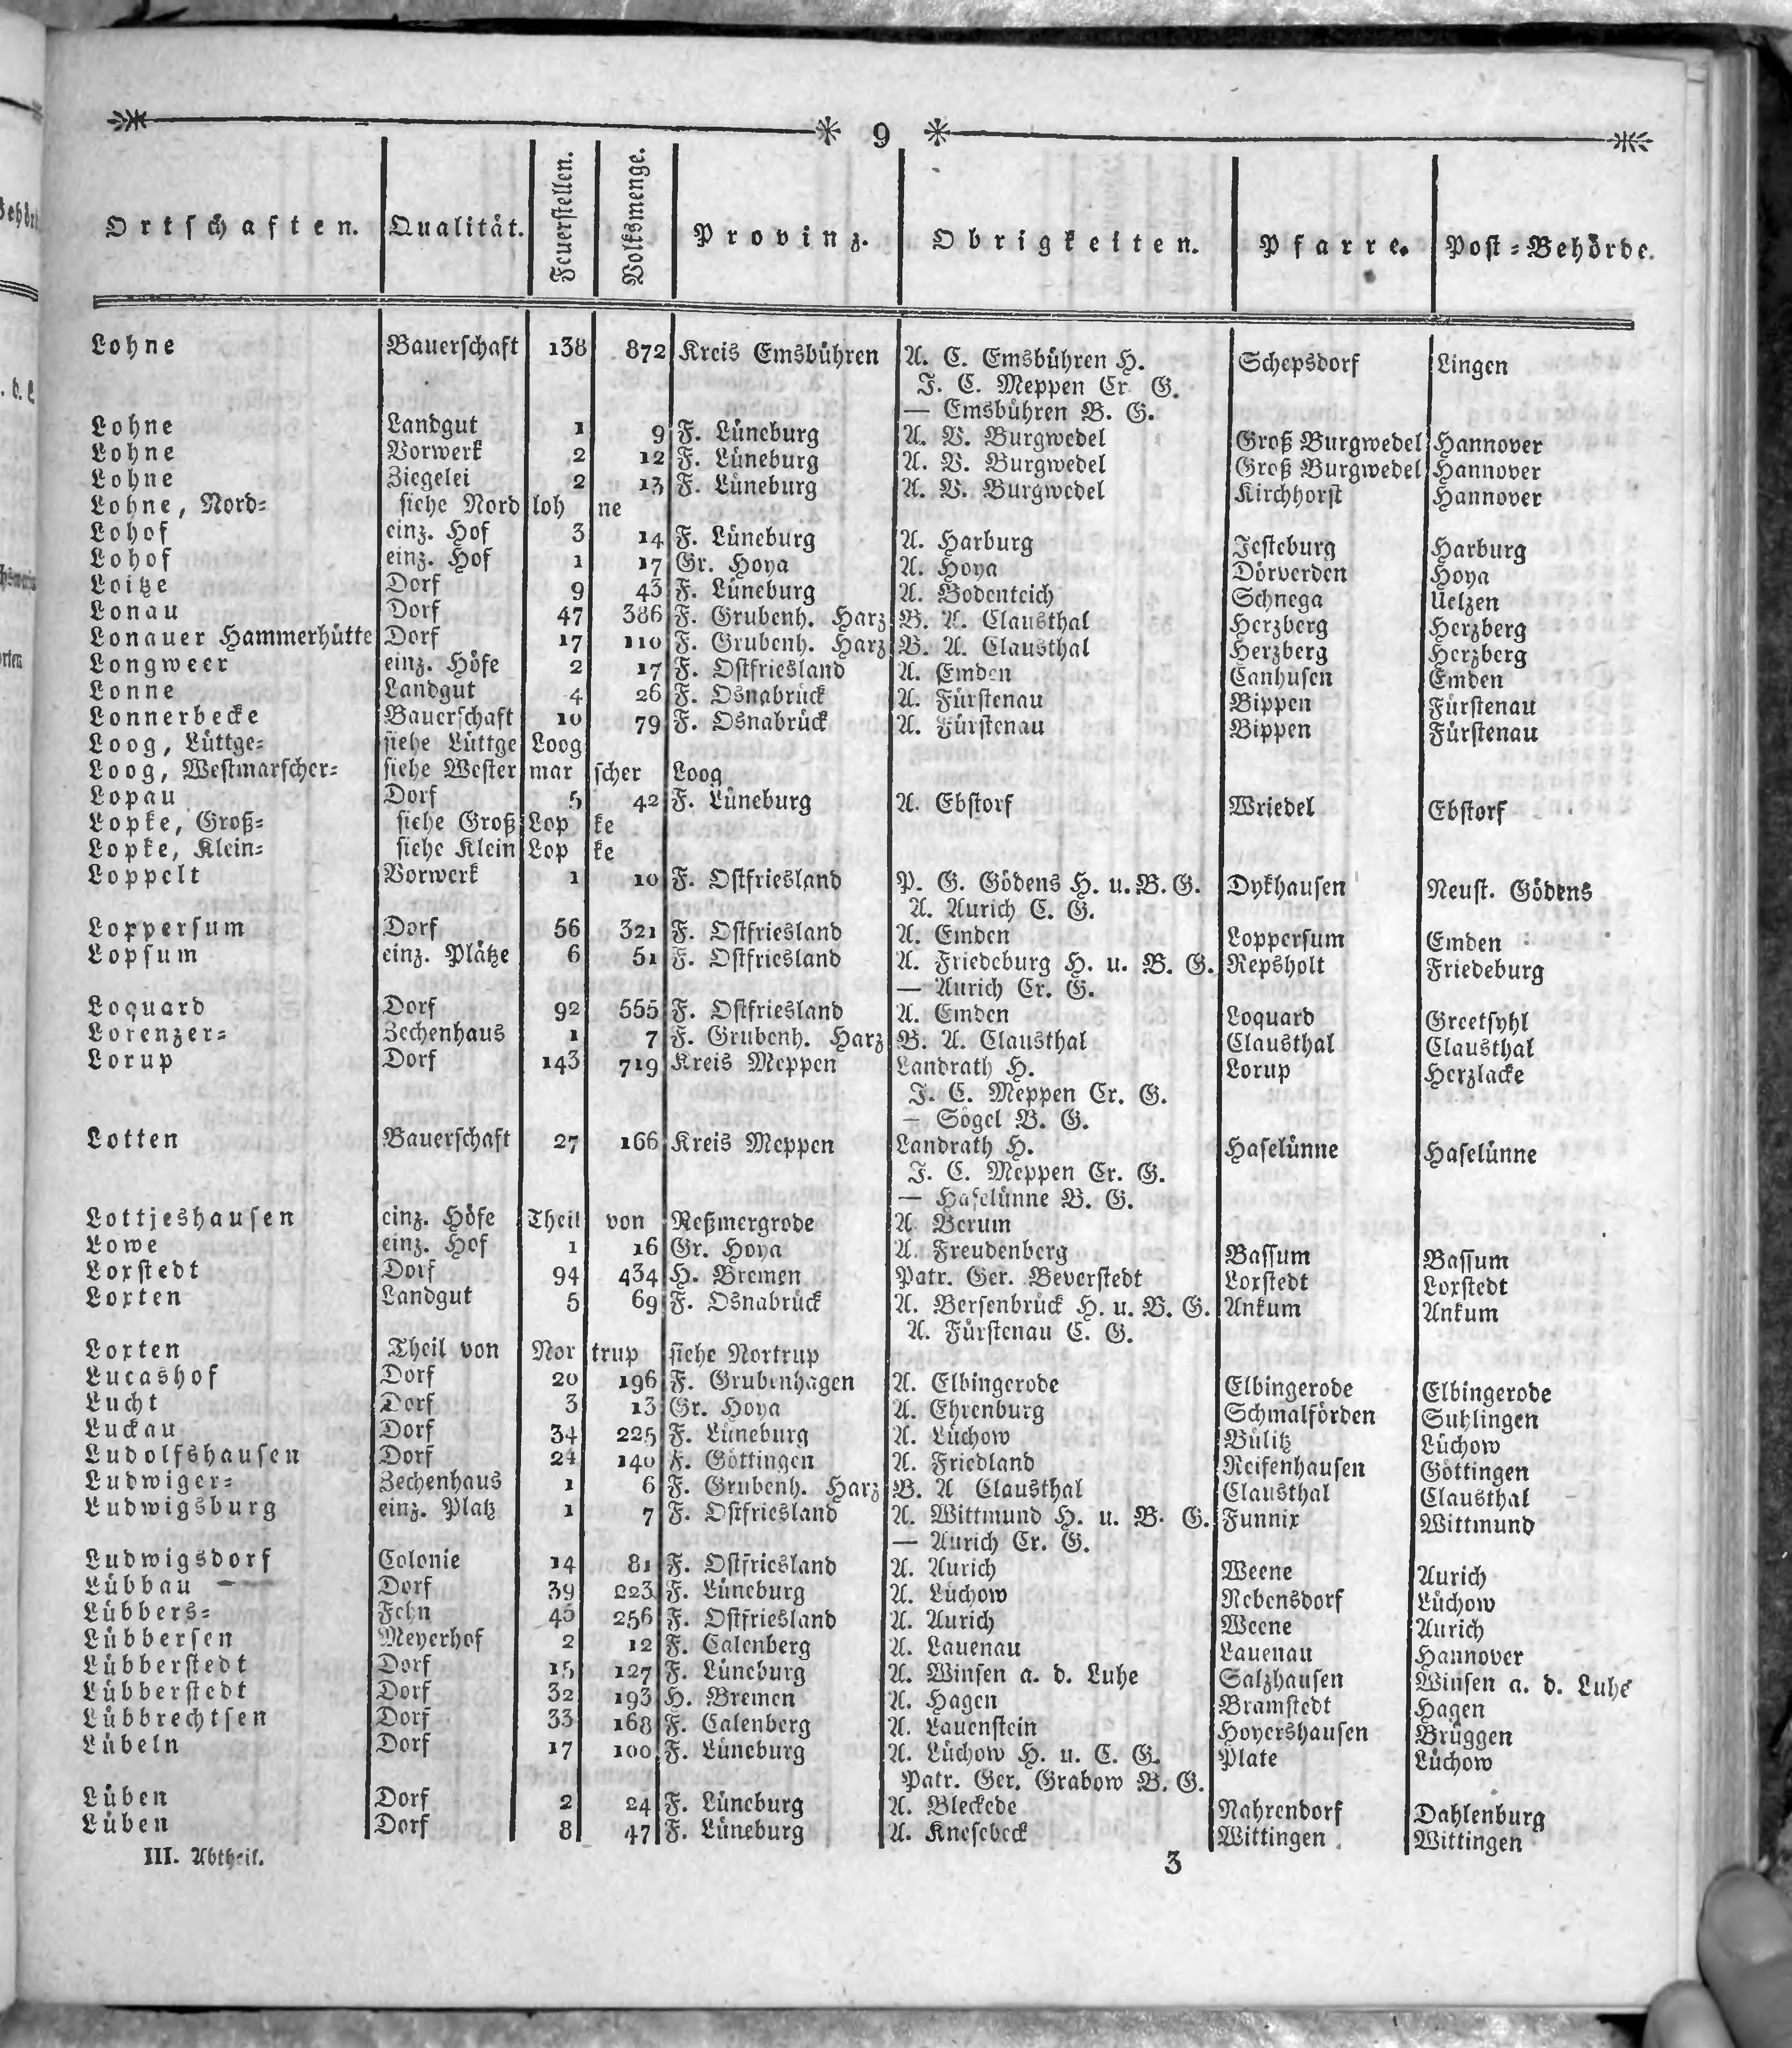 9
Ortschaften. Qualität. Feuerstellen. Volksmenge. Provinz. Obrigkeiten. Pfarre. Post-Behörde.
Lohne Bauerschaft 138 872 Kreis Emsbühren A. C. Emsbühren H. Schepsdorf Lingen
J. C. Meppen Cr. G.
— Emsbühren B. G.
Lohne Landgut 1 9 F. Lüneburg A. V. Burgwedel Groß Burgwedel Hannover
Lohne Vorwerk 2 12 F. Lüneburg A. V. Burgwedel Groß Burgwedel Hannover
Lohne Ziegelei 2 13 F. Lüneburg A. V. Burgwedel Kirchhorst Hannover
Lohne, Nord- siehe Nord loh ne
Lohof einz. Hof 3 14 F. Lüneburg A. Harburg Jesteburg Harburg
Lohof einz. Hof 1 17 Gr. Hoya A. Hoya Dörverden Hoya
Loitze Dorf 9 43 F. Lüneburg A. Bodenteich Schnega Uelzen
Lonau Dorf 47 386 F. Grubenh. Harz B. A. Clausthal Herzberg Herzberg
Lonauer Hammerhütte Dorf 17 110 F. Grubenh. Harz B. A. Clausthal Herzberg Herzberg
Longweer einz. Höfe 2 17 F. Ostfriesland A. Emden Canhusen Emden
Lonne Landgut 4 26 F. Osnabrück A. Fürstenau Bippen Fürstenau
Lonnerbecke Bauerschaft 10 79 F. Osnabrück A. Fürstenau Bippen Fürstenau
Loog, Lüttge- siehe Lüttge Loog
Loog, Westmarscher- siehe Wester mar scher Loog
Lopau Dorf 5 42 F. Lüneburg A. Ebstorf Wriedel Ebstorf
Lopke, Groß- siehe Groß Lop ke
Lopke, Klein- siehe Klein Lop ke
Loppelt Vorwerk 1 10 F. Ostfriesland P. G. Gödens H. u. B. G. Dykhausen Neust. Gödens
A. Aurich C. G.
Loppersum Dorf 56 321 F. Ostfriesland A. Emden Loppersum Emden
Lopsum einz. Plätze 6 51 F. Ostfriesland A. Friedeburg H. u. B. G. Repsholt Friedeburg
— Aurich Cr. G.
Loquard Dorf 92 555 F. Ostfriesland A. Emden Loquard Greetsyhl
Lorenzer- Zechenhaus 1 7 F. Grubenh. Harz B. A. Clausthal Clausthal Clausthal
Lorup Dorf 143 719 Kreis Meppen Landrath H. Lorup Herzlacke
J. C. Meppen Cr. G.
— Sögel B. G.
Lotten Bauerschaft 27 166 Kreis Meppen Landrath H. Haselünne Haselünne
J. C. Meppen Cr. G.
— Haselünne B. G.
Lottjeshausen einz. Höfe Theil von Reßmergrode A. Berum
Lowe einz. Hof 1 16 Gr. Hoya A. Freudenberg Bassum Bassum
Loxstedt Dorf 94 434 H. Bremen Patr. Ger. Beverstedt Loxstedt Loxstedt
Loxten Landgut 5 69 F. Osnabrück A. Bersenbrück H. u. B. G. Ankum Ankum
A. Fürstenau C. G.
Loxten Theil von Nor trup siehe Nortrup
Lucashof Dorf 20 196 F. Grubenhagen A. Elbingerode Elbingerode Elbingerode
Lucht Dorf 3 13 Gr. Hoya A. Ehrenburg Schmalförden Suhlingen
Luckau Dorf 34 225 F. Lüneburg A. Lüchow Bülitz Lüchow
Ludolfshausen Dorf 24 140 F. Göttingen A. Friedland Reifenhausen Göttingen
Ludwiger- Zechenhaus 1 6 F. Grubenh. Harz B. A Clausthal Clausthal Clausthal
Ludwigsburg einz. Platz 1 7 F. Ostfriesland A. Wittmund H. u. B. G. Funnix Wittmund
— Aurich Cr. G.
Ludwigsdorf Colonie 14 81 F. Ostfriesland A. Aurich Weene Aurich
Lübbau Dorf 39 223 F. Lüneburg A. Lüchow Rebensdorf Lüchow
Lübbers- Fehn 45 256 F. Ostfriesland A. Aurich Weene Aurich
Lübbersen Meyerhof 2 12 F. Calenberg A. Lauenau Lauenau Hannover
Lübberstedt Dorf 15 127 F. Lüneburg A. Winsen a. d. Luhe Salzhausen Winsen a. d. Luhe
Lübberstedt Dorf 32 193 H. Bremen A. Hagen Bramstedt Hagen
Lübbrechtsen Dorf 33 168 F. Calenberg A. Lauenstein Hoyershausen Brüggen
Lübeln Dorf 17 100 F. Lüneburg A. Lüchow H. u. C. G. Plate Lüchow
Patr. Ger. Grabow B. G.
Lüben Dorf 2 24 F. Lüneburg A. Bleckede Nahrendorf Dahlenburg
Lüben Dorf 8 47 F. Lüneburg A. Knesebeck Wittingen Wittingen
III. Abtheil. 3